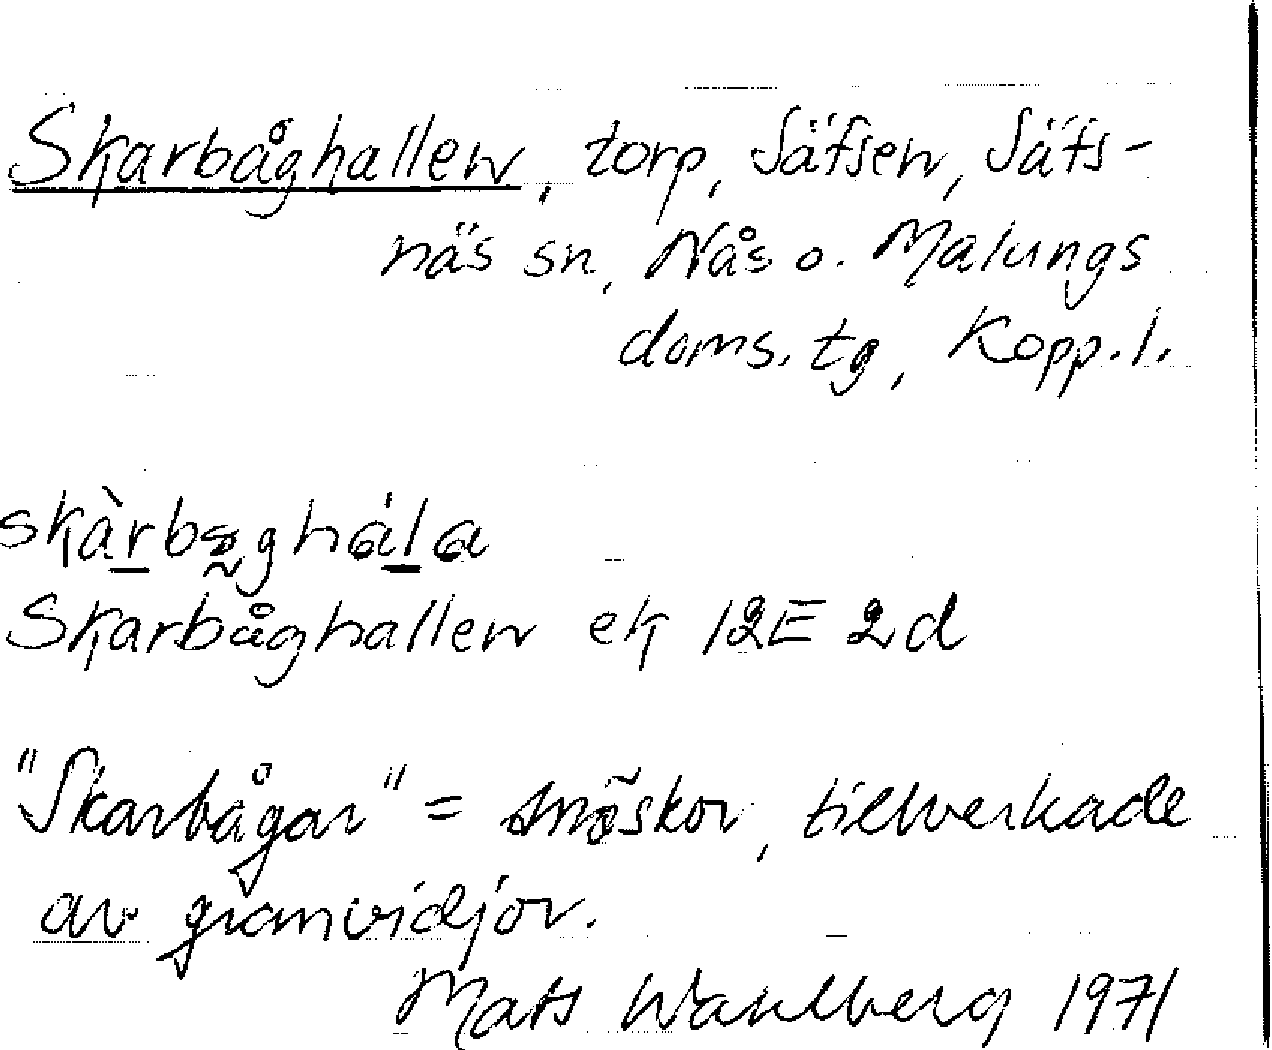 Skarbåghallen, torp, Säfsen, Säfs-
näs sn, Nås o. Malungs
doms. tg, Kopp. l.
Skarbåghallen ek 12E 2d
"Skarbågar" = snöskor, tillverkade
av granvidjor.
Mats Wahlberg 1971